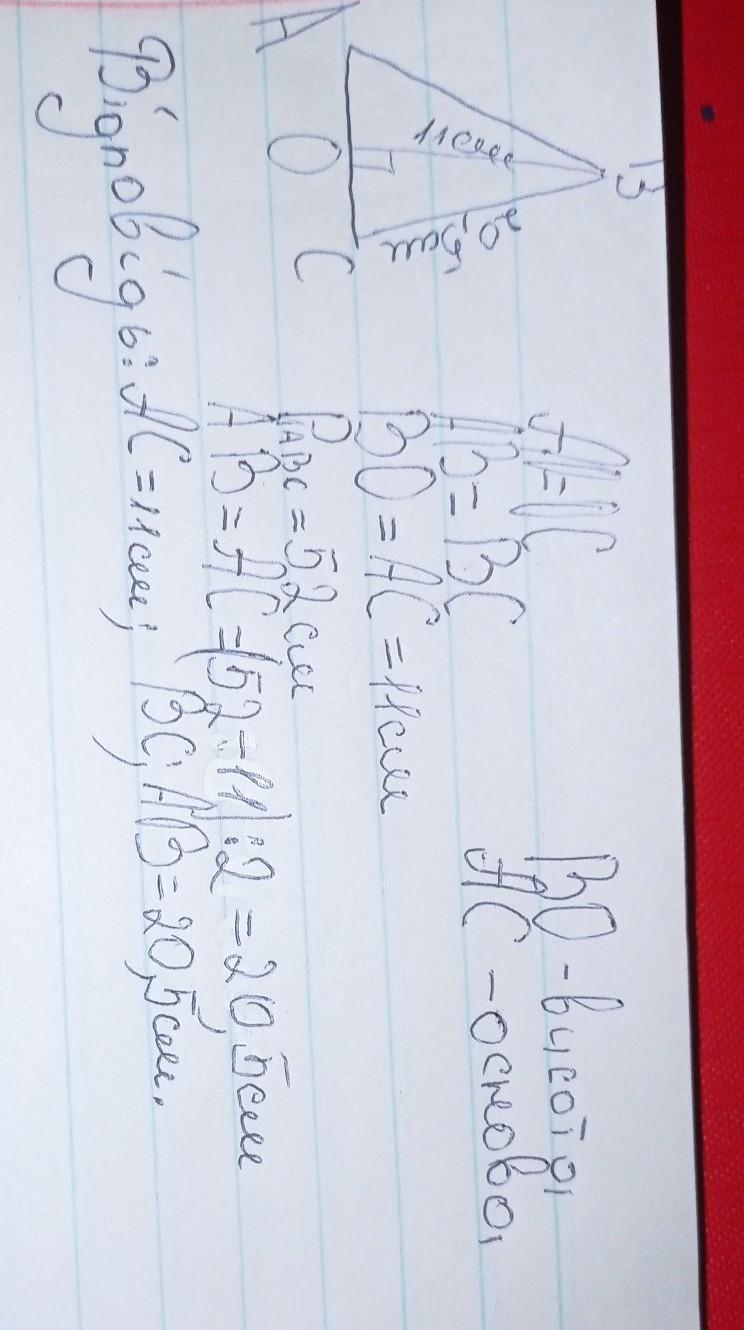 В
11см
20,5см
А
О
С
∠A=∠C
BO - висота,
AB=BC
AC - основа,
BO=AC=11см
P ABC=52см
AB=AC=(52-11):2=20,5см
Відповідь: AC=11см; BC, AB=20,5см.